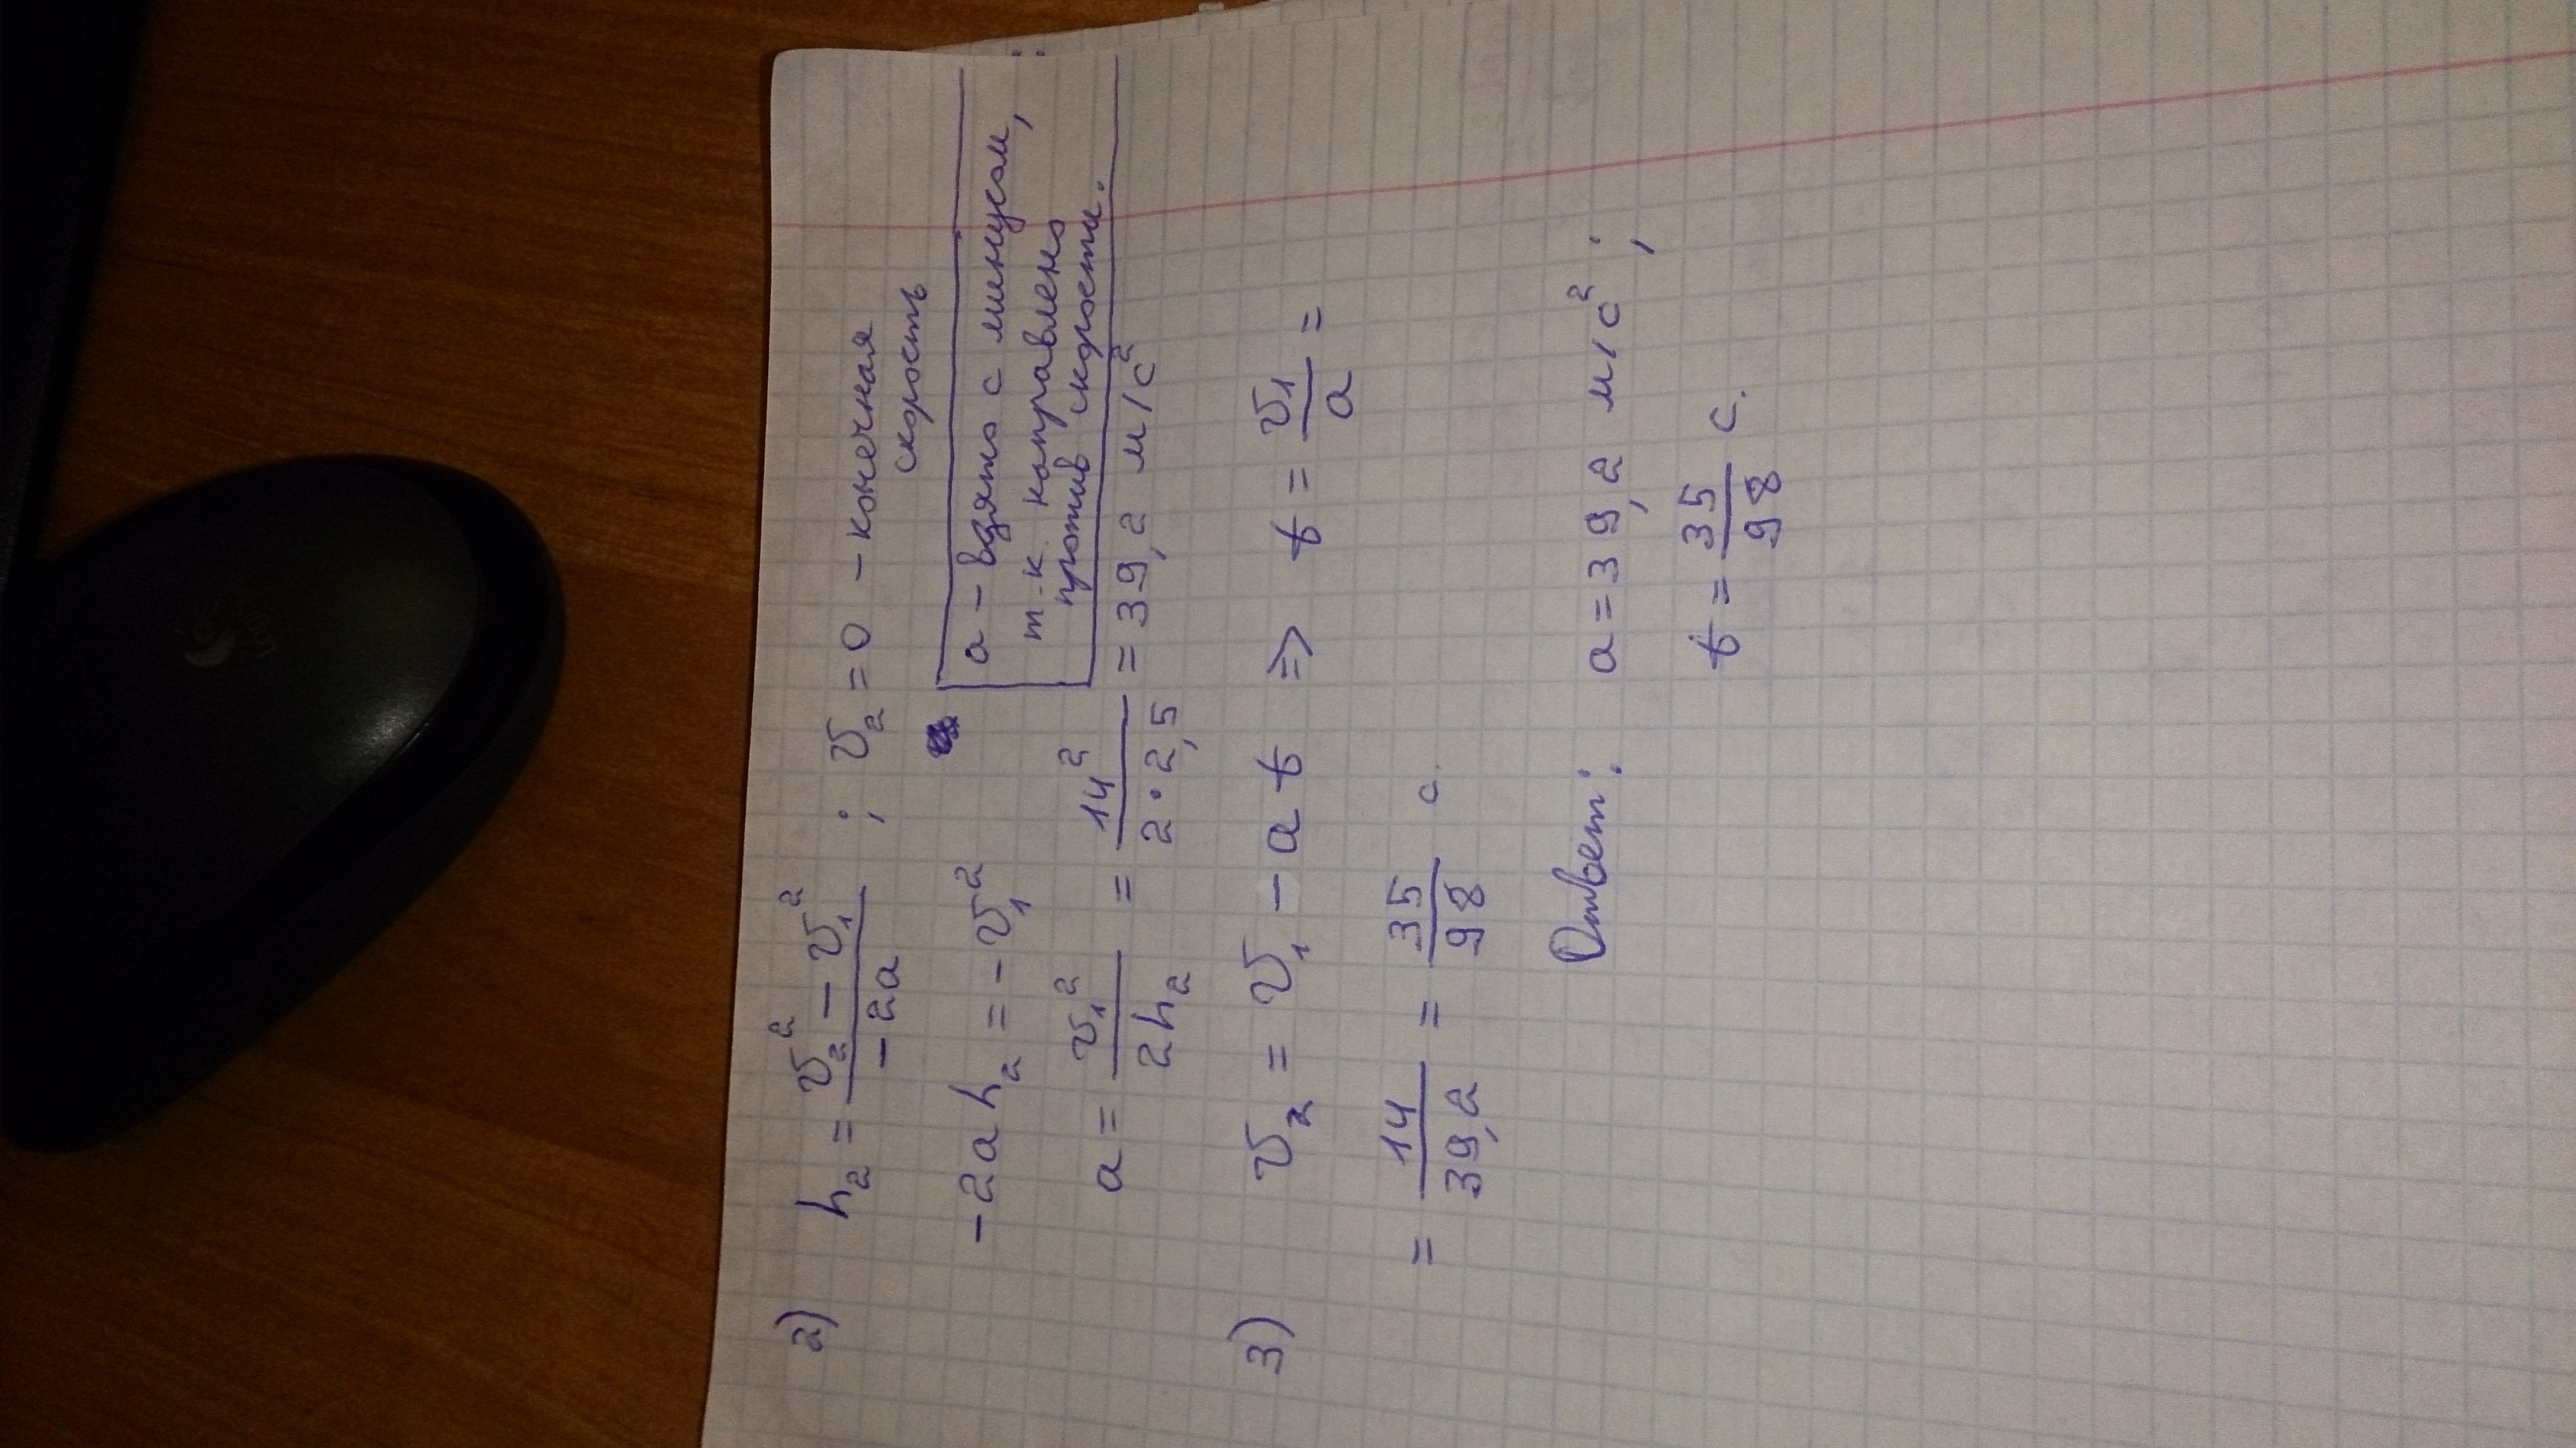 2) h₂ = (v₂² - v₁²)/(-2a) ; v₂ = 0 - конечная
скорость
-2ah₂ = -v₁²
a - взято с минусом,
т-к. направлено
против скорости.
a = v₁²/(2h₂) = 14²/(2·2,5) = 39,2 м/с²
3) v₂ = v₁ - at => t = v₁/a =
= 14/39,2 = 35/98 с.
Ответ: a = 39,2 м/с² ;
t = 35/98 с.